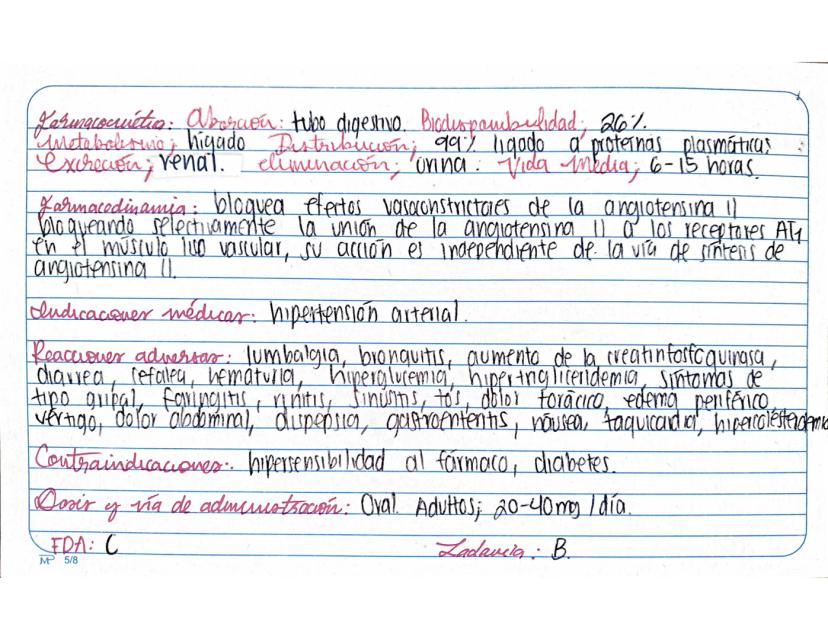 Farmacocinética: Absorción: tubo digestivo. Biodisponibilidad; 26%.
metabolismo; hígado Distribución; 99% ligado a proteínas plasmáticas
Excreción; renal. eliminación; orina. Vida media; 6-15 horas.
Farmacodinamia: bloquea efectos vasoconstrictores de la angiotensina II
bloqueando selectivamente la unión de la angiotensina II a los receptores AT1
en el músculo liso vascular, su acción es independiente de la vía de síntesis de
angiotensina II.
Indicaciones médicas: hipertensión arterial.
Reacciones adversas: lumbalgia, bronquitis, aumento de la creatinfosfoquinasa,
diarrea, cefalea, hematuria, hiperglucemia, hipertrigliceridemia, síntomas de
tipo gripal, faringitis, rinitis, sinusitis, tos, dolor torácico, edema periférico
vértigo, dolor abdominal, dispepsia, gastroenteritis, náusea, taquicardia, hipercolesterolemia
Contraindicaciones: hipersensibilidad al fármaco, diabetes.
Dosis y vía de administración: Oral. Adultos; 20-40mg/día.
FDA: C Lactancia: B.
MP 5/8